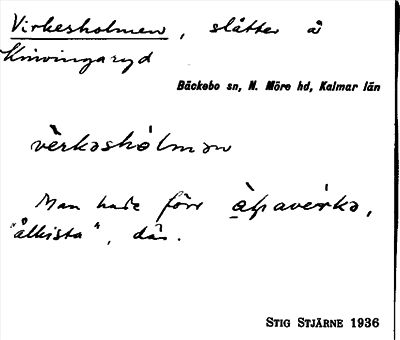 Virkesholmen, slåtter å
Knivingaryd
Bäckebo sn, N. Möre hd, Kalmar län
vèrkəshólmən
Man hade förr ålaverkə,
"ålkista", där.
STIG STJÄRNE 1936